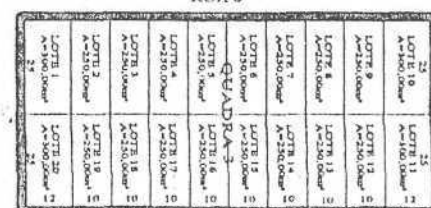 25
LOTE 1
A=300,00m²
LOTE 2
A=250,00m²
LOTE 3
A=250,00m²
LOTE 4
A=250,00m²
LOTE 5
A=250,00m²
LOTE 6
A=250,00m²
LOTE 7
A=250,00m²
LOTE 8
A=250,00m²
LOTE 9
A=250,00m²
25
LOTE 10
A=300,00m²
QUADRA 3
25
LOTE 20
A=300,00m²
LOTE 19
A=250,00m²
LOTE 18
A=250,00m²
LOTE 17
A=250,00m²
LOTE 16
A=250,00m²
LOTE 15
A=250,00m²
LOTE 14
A=250,00m²
LOTE 13
A=250,00m²
LOTE 12
A=250,00m²
25
LOTE 11
A=300,00m²
12
10
10
10
10
10
10
10
10
12